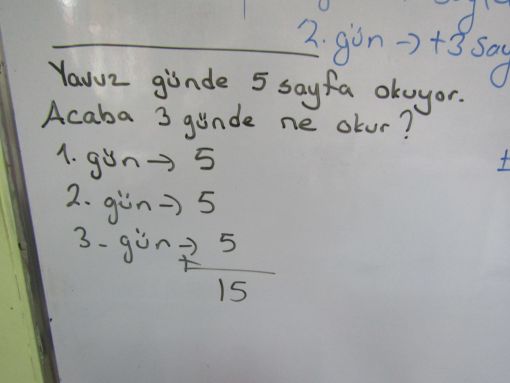 2. gün → +3 say
Yavuz günde 5 sayfa okuyor.
Acaba 3 günde ne okur?
1. gün → 5
2. gün → 5
3- gün → 5
+
15